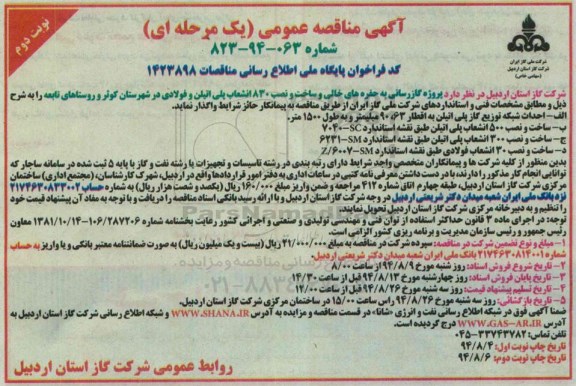 نوبت دوم
آگهی مناقصه عمومی (یک مرحله ای)
شماره ۰۶۳-۹۴-۸۲۳
کد فراخوان پایگاه ملی اطلاع رسانی مناقصات ۱۴۲۳۸۹۸
شرکت ملی گاز ایران
شرکت گاز استان اردبیل
(سهامی خاص)
شرکت گاز استان اردبیل در نظر دارد پروژه گازرسانی به حفره های خالی و ساخت و نصب ۸۳۰ انشعاب پلی اتیلن و فولادی در شهرستان کوثر و روستاهای تابعه را به شرح
ذیل و مطابق مشخصات فنی و استانداردهای شرکت ملی گاز ایران از طریق مناقصه به پیمانکار حائز شرایط واگذار نماید.
الف - احداث شبکه توزیع گاز پلی اتیلن به اقطار ۶۳و۹۰ میلیمتر و به طول ۱۵۰۰ متر.
ب - ساخت و نصب ۵۰۰ انشعاب پلی اتیلن طبق نقشه استاندارد ۷۰۳۰-SC
ج - ساخت و نصب ۳۰۰ انشعاب پلی اتیلن طبق نقشه استاندارد ۶۲۳۱-SM
د - ساخت و نصب ۳۰ انشعاب فولادی طبق نقشه استاندارد Z/۶۰۰۷-SM
بدین منظور از کلیه شرکت ها و پیمانکاران متخصص واجد شرایط دارای رتبه بندی در رشته تاسیسات و تجهیزات یا رشته نفت و گاز با پایه ۵ ثبت شده در سامانه ساجار که
توانایی انجام کار مذکور را دارند، با در دست داشتن معرفی نامه کتبی در ساعات اداری به دفتر امور قراردادها واقع در اردبیل، شهرک کارشناسان، (مجتمع اداری) ساختمان
مرکزی شرکت گاز استان اردبیل، طبقه چهارم اتاق شماره ۴۱۲ مراجعه و ضمن واریز مبلغ ۱۶۰/۰۰۰ ریال (یکصد و شصت هزار ریال) به شماره حساب ۲۱۷۴۶۳۰۸۳۳۰۰۲
نزد بانک ملی ایران شعبه میدان دکتر شریعتی اردبیل در وجه شرکت گاز استان اردبیل و با ارائه رسید بانکی اسناد مناقصه را دریافت و با توجه به مفاد آن پیشنهاد قیمت خود
را تنظیم و به دبیرخانه مرکزی شرکت گاز استان اردبیل تحویل نمایند.
توجه: در اجرای ماده ۳ قانون حداکثر استفاده از توان فنی و مهندسی تولیدی و صنعتی و اجرائی کشور رعایت بخشنامه شماره ۱۰۶/۲۸۷۲۰۶-۱۳۸۱/۱۰/۱۴ معاون
رئیس جمهور و رئیس سازمان مدیریت و برنامه ریزی کشور الزامی است.
۱- مبلغ و نوع تضمین شرکت در مناقصه: سپرده شرکت در مناقصه به مبلغ ۲۱/۰۰۰/۰۰۰ ریال (بیست و یک میلیون ریال) به صورت ضمانتنامه معتبر بانکی و یا واریز به حساب
شماره ۲۱۷۴۶۳۰۸۱۴۰۰۱ بانک ملی ایران شعبه میدان دکتر شریعتی اردبیل.
۲- تاریخ شروع فروش اسناد: روز شنبه مورخ ۹۴/۸/۹ از ساعت ۸/۰۰
۳- تاریخ پایان فروش اسناد: روز چهارشنبه مورخ ۹۴/۸/۱۳ لغایت ساعت ۱۴/۳۰
۴- تاریخ تسلیم پیشنهاد قیمت: روز سه شنبه مورخ ۹۴/۸/۲۶ قبل از ساعت ۱۲/۰۰
۵- تاریخ بازگشائی: روز سه شنبه مورخ ۹۴/۸/۲۶ راس ساعت ۱۵/۰۰ در ساختمان مرکزی شرکت گاز استان اردبیل.
ضمنا آگهی فوق در شبکه اطلاع رسانی نفت و انرژی «شانا» در قسمت مناقصه و مزایده به آدرس WWW.SHANA.IR و شبکه اطلاع رسانی شرکت گاز استان اردبیل به
آدرس WWW.GAS-AR.IR درج گردیده است.
تلفن تماس: ۳۳۷۴۳۷۸۲-۰۴۵
تاریخ چاپ نوبت اول: ۹۴/۸/۴
تاریخ چاپ نوبت دوم: ۹۴/۸/۶
روابط عمومی شرکت گاز استان اردبیل